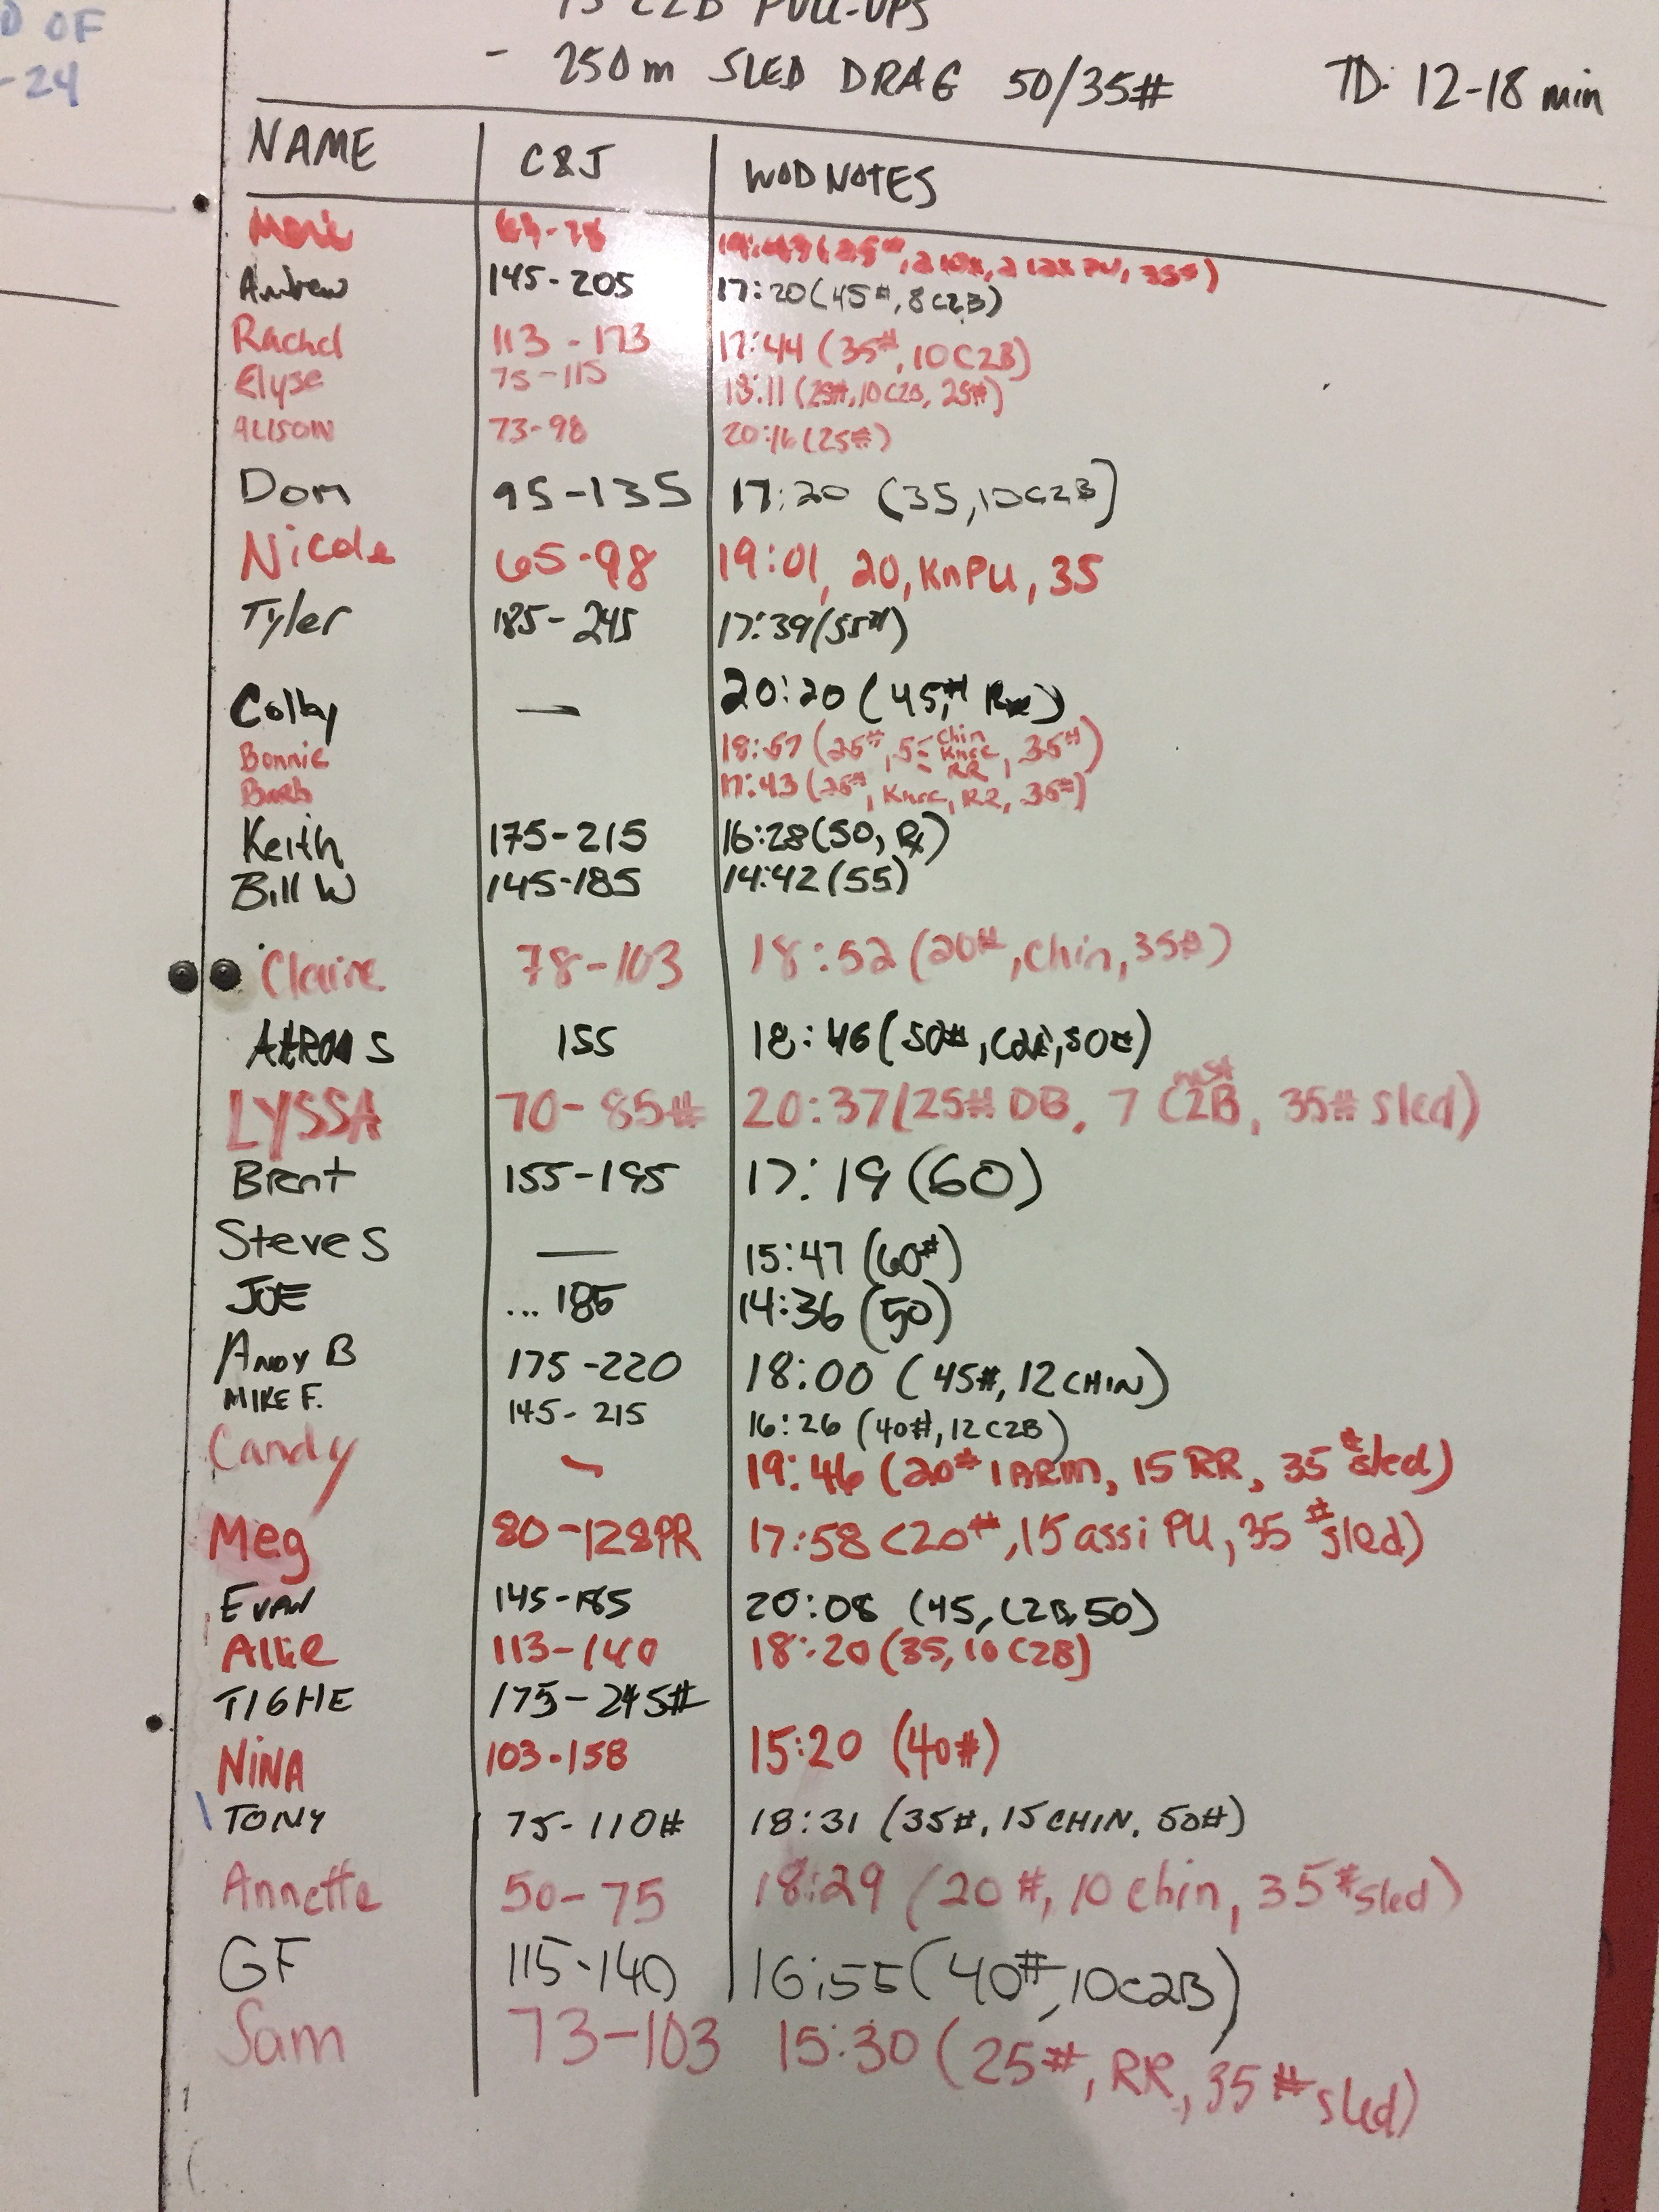 D OF
-24
15 C2B PULL-UPS
- 250m SLED DRAG 50/35# TD: 12-18 min
NAME C&J WOD NOTES
Andrew 145-205 17:20 (45#, 8 C2B)
Rachel 113-173 17:44 (35#, 10 C2B)
Elyse 75-115 18:11 (25#, 10 C2B, 25#)
ALISON 73-98 20:16 (25#)
Dom 95-135 17:20 (35, 10 C2B)
Nicole 65-98 19:01, 20, KnPU, 35
Tyler 185-245 17:39 (55#)
Colby — 20:20 (45,# Rx)
Bonnie 18:57 (25#, Chin Knee RR, 35#)
Barb 17:43 (25#, Knee, RR, 35#)
Keith 175-215 16:28 (50, Rx)
Bill W 145-185 14:42 (55)
Claire 78-103 18:52 (20#, Chin, 35#)
AARON S 155 18:46 (50#, C2B, 50#)
LYSSA 70-85# 20:37 (25# DB, 7 C2B, 35# sled)
Brent 155-195 17:19 (60)
Steve S — 15:47 (60#)
JOE ... 185 14:36 (50)
ANDY B 175-220 18:00 (45#, 12 CHIN)
MIKE F. 145-215 16:26 (40#, 12 C2B)
Candy - 19:46 (20# 1 ARM, 15 RR, 35# sled)
Meg 80-128PR 17:58 (20#, 15 assi PU, 35# sled)
EVAN 145-185 20:08 (45, C2B, 50)
Allie 113-140 18:20 (35, 10 C2B)
TIGHE 175-245#
NINA 103-158 15:20 (40#)
TONY 75-110# 18:31 (35#, 15 CHIN, 50#)
Annette 50-75 18:29 (20#, 10 chin, 35# sled)
GF 115-140 16:55 (40#, 10 C2B)
Sam 73-103 15:30 (25#, RR, 35# sled)